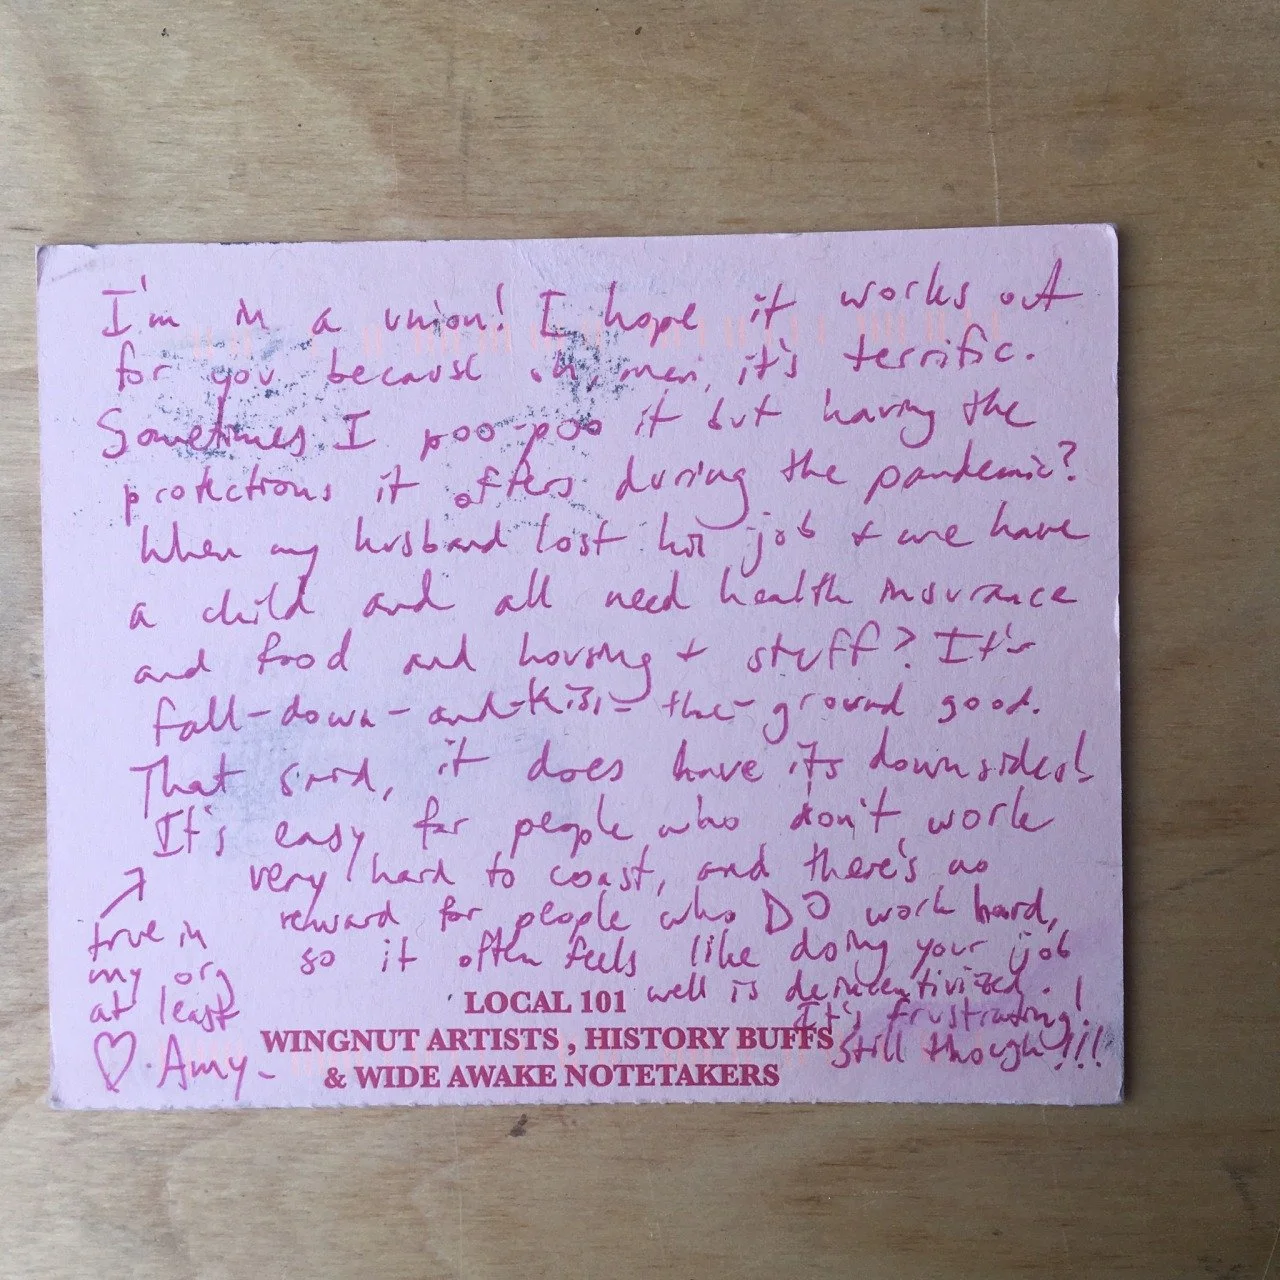 I'm in a union! I hope it works out
for you because oh, man, it's terrific.
Sometimes I poo-poo it but having the
protections it offers during the pandemic?
When my husband lost his job + we have
a child and all need health insurance
and food and housing + stuff? It's
fall-down-and-kiss-the-ground good.
That said, it does have its downsides!
It's easy for people who don't work
very hard to coast, and there's no
reward for people who DO work hard,
so it often feels like doing your job
well is deincentivized.
It's frustrating!
Still though!!!
↗
true in
my org
at least
♡. Amy-
LOCAL 101
WINGNUT ARTISTS , HISTORY BUFFS
& WIDE AWAKE NOTETAKERS